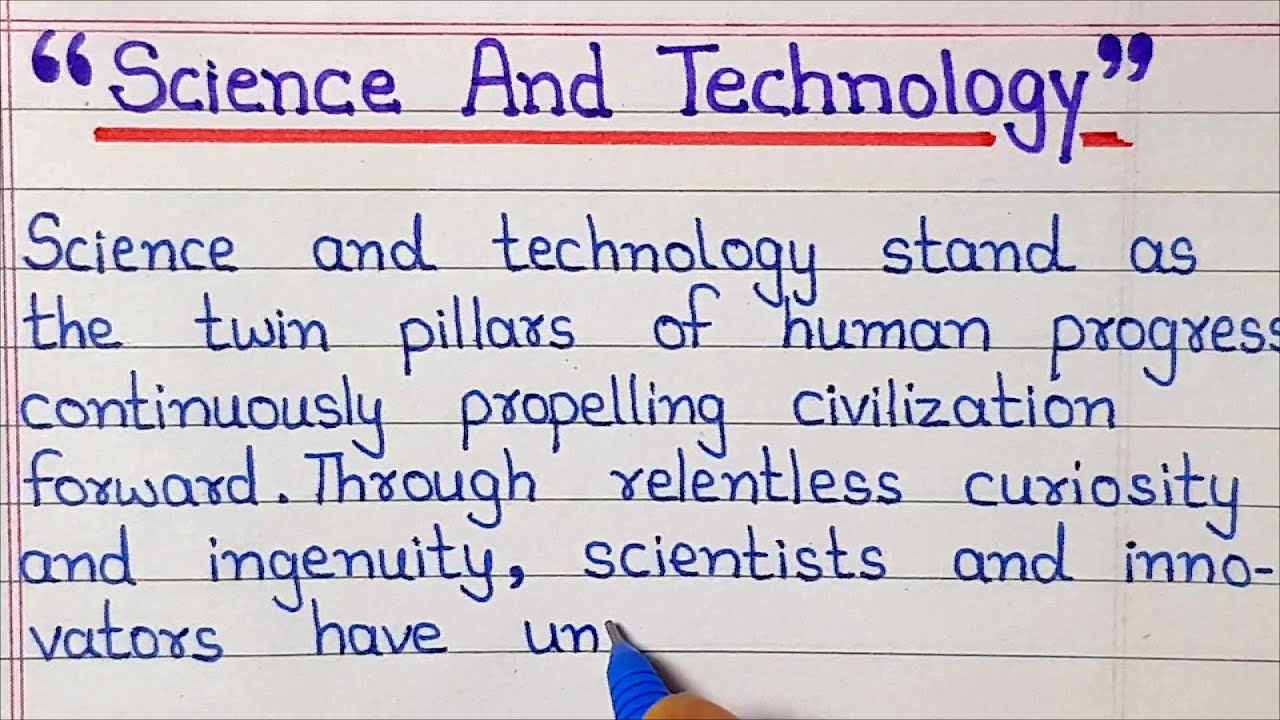 “Science And Technology”
Science and technology stand as
the twin pillars of human progress
continuously propelling civilization
forward. Through relentless curiosity
and ingenuity, scientists and inno-
vators have un